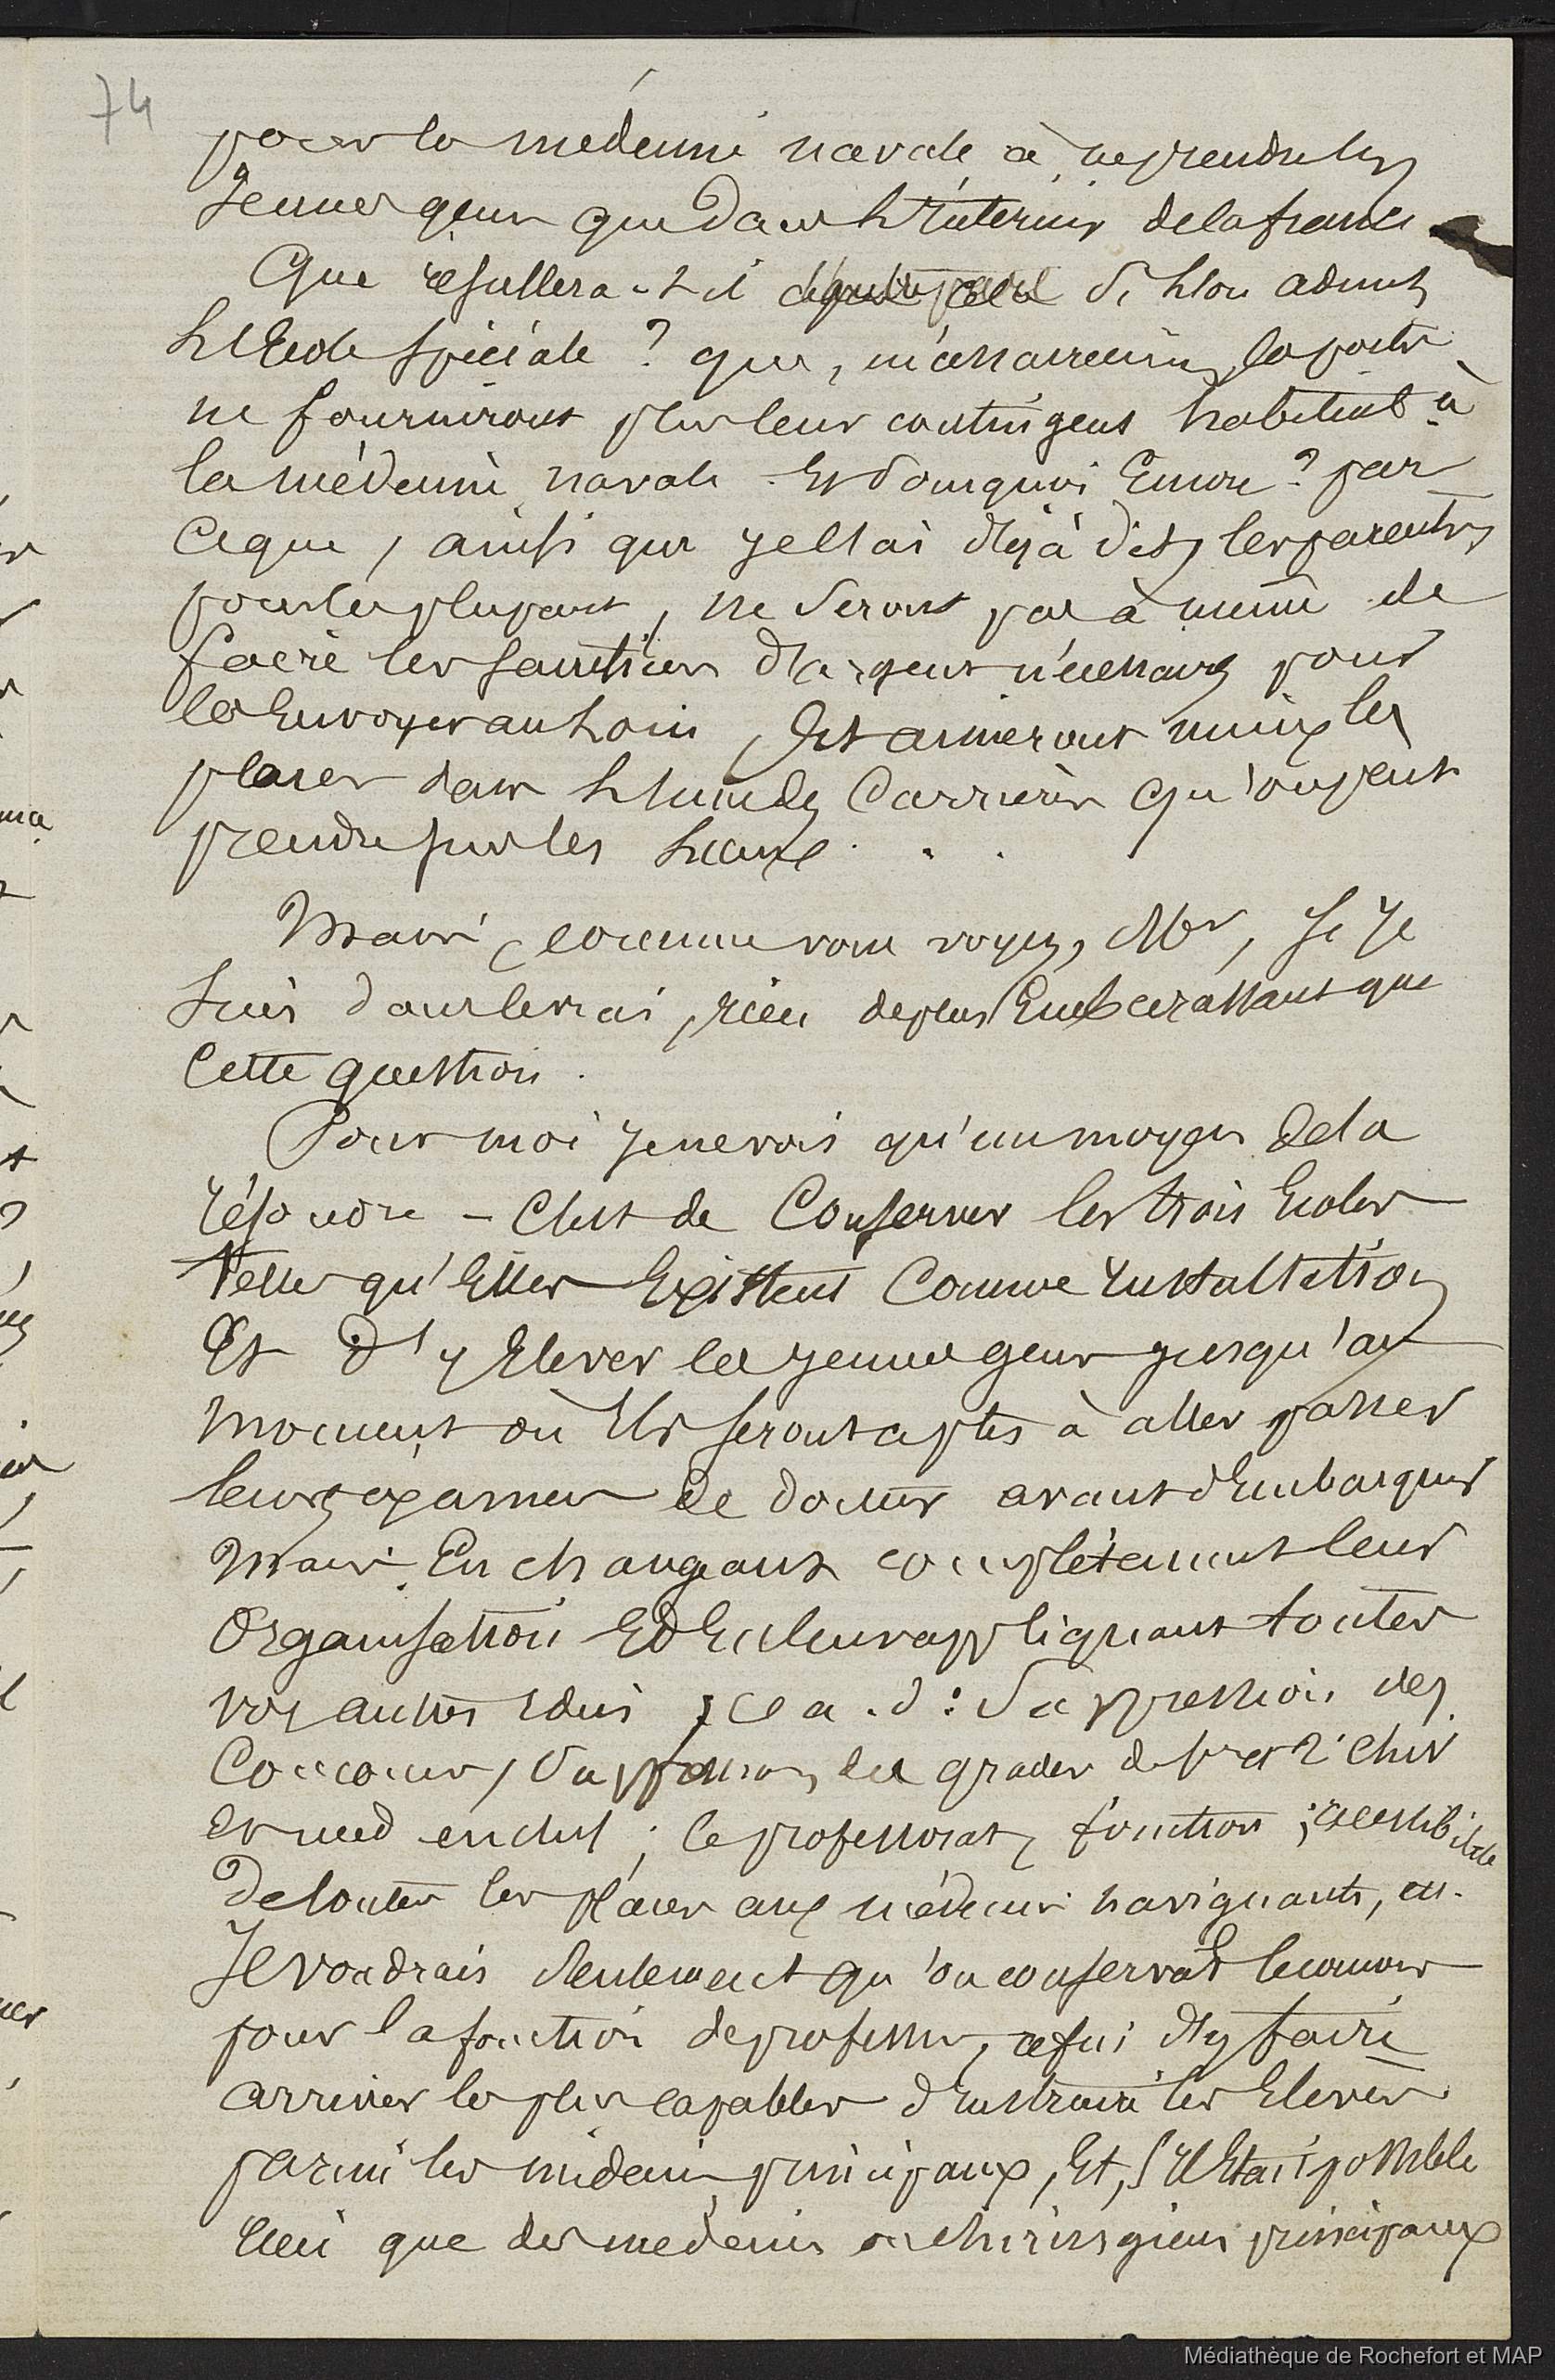 74
pour la médecine navale à ne prendre les
Jeunes gens que dans l'intérieur de la france
Que resultera-t-il si l'on admet
l'Ecole spéciale ? que, nécessairement, les ports
ne fourniront plus leur contingent habituel à
la médecine navale. Et pourquoi Encore ? par
ceque, ainsi que je l'ai déjà dit, les parents,
pour la plupart, ne seront pas à même de
faire les sacrifices d'argent nécessaires pour
les Envoyer au loin, Et aimeront mieux les
placer dans l'une des Carrières qu'on peut
prendre sur les lieux . . .
Mais, comme vous voyez, Mr, si je
suis dans le vrai, rien de plus Embarassant que
Cette question.
Pour moi je ne vois qu'un moyen de la
résoudre - C'est de Conserver les trois Ecoles
telles qu'Elles Existent Comme Installation
Et d'y Elever les jeunes gens jusqu'au
moment où Ils seront aptes à aller passer
leurs examens de docteur avant d'Embarquer
Mais En changeant complètement leur
Organisation Et En leur appliquant toutes
vos autres idées, c. a. d : Suppression des
Concours, Suppression des grades de 1er et 2e Chir
et med en chef ; le professorat, fonction ; accessibilité
De toutes les places aux médecins navignants, etc.
Je voudrais seulement qu'on conservât le concours
pour la fonction de professeur, afin d'y faire
arriver les plus capables d'Instruire les Elèves
parmi les médecins principaux, Et, s'il Etait possible
rien que des medecins ou chirurgiens principaux
Médiathèque de Rochefort et MAP